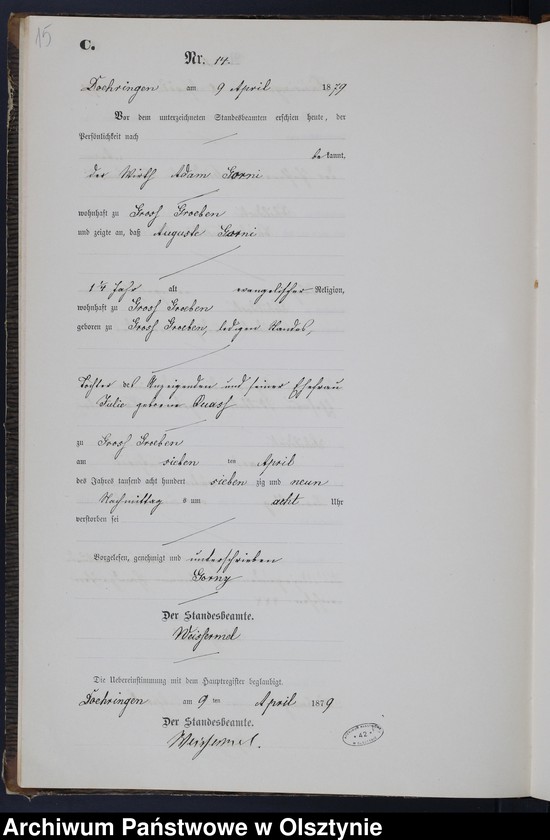 15
C.
Nr. 14.
Doehringen am 9 April 1879
Vor dem unterzeichneten Standesbeamten erschien heute, der
Persönlichkeit nach
bekannt,
der Wirth Adam Gorni
wohnhaft zu Grosh Groeben
und zeigte an, daß Auguste Gorni
14 Jahr alt evangelischer Religion,
wohnhaft zu Grosh Groeben
geboren zu Grosh Groeben, ledigen Standes,
Tochter des Anzeigenden und seiner Ehefrau
Julie geborne Quash
zu Grosh Groeben
am sieben ten April
des Jahres tausend acht hundert siebenzig und neun
Nachmittags um acht Uhr
verstorben sei
Vorgelesen, genehmigt und unterschrieben
Gorny
Der Standesbeamte.
Weissermel
Die Uebereinstimmung mit dem Hauptregister beglaubigt.
Doehringen am 9 ten April 1879
Der Standesbeamte.
Weissermel.
42
Archiwum Państwowe w Olsztynie